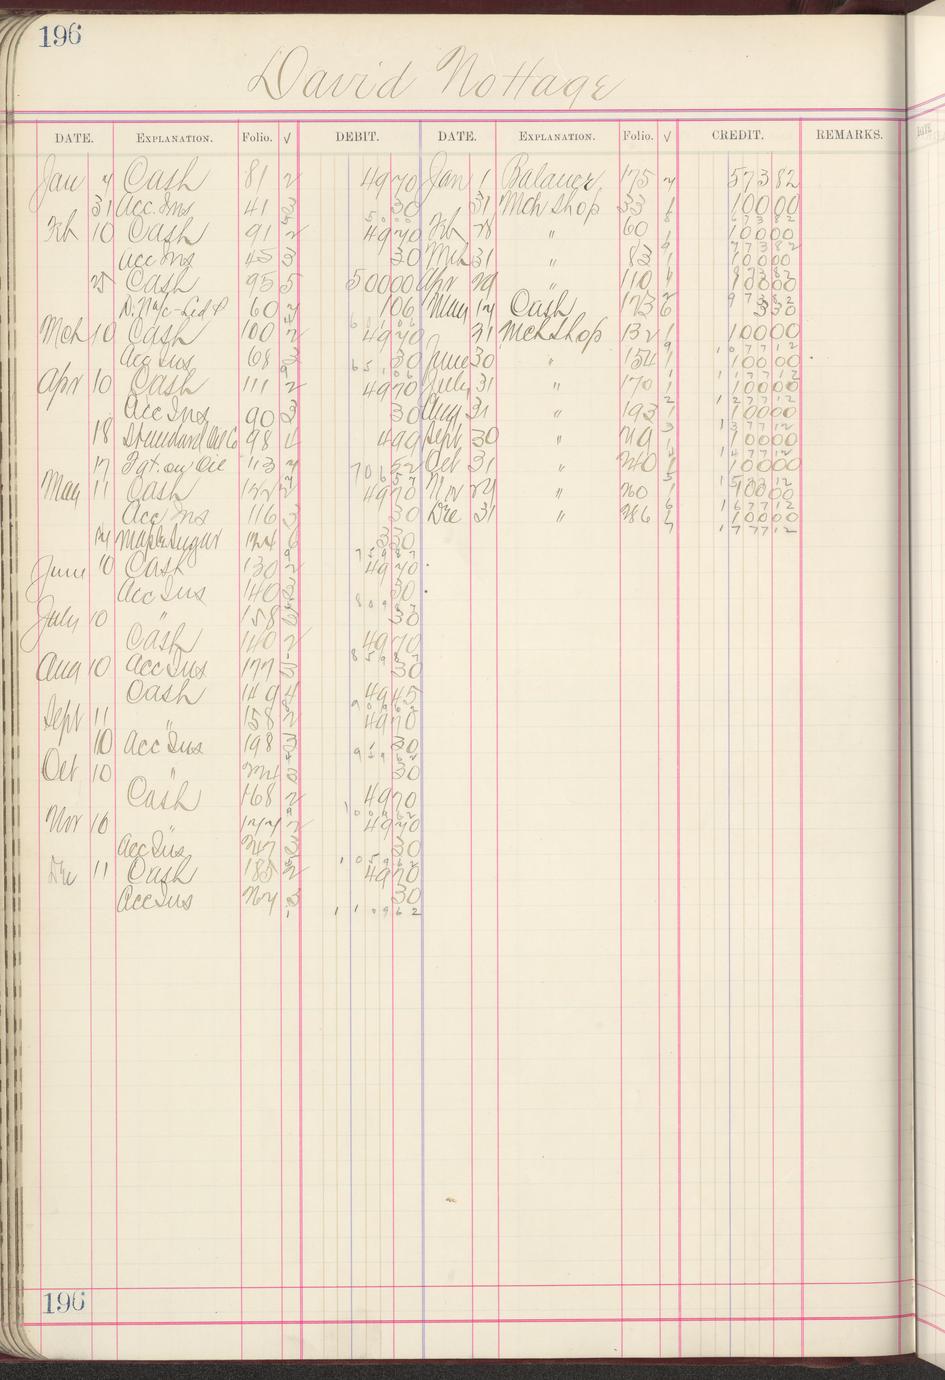 196
David Nottage
DATE. EXPLANATION. Folio. √ DEBIT. DATE. EXPLANATION. Folio. √ CREDIT. REMARKS.
Jan Cash 81 2 4970 Jan 1 Balance 175 57382
31 Acc. Ins 41 3 30 31 Mch Shop 33 1 10000
Feb 10 Cash 91 2 4970 Feb 28 " 60 1 10000
Acc Ins 45 3 30 Mch 31 " 83 1 10000
25 Cash 95 5 50000 Apr 29 " 110 10000
60 106 May 14 Cash 123 6 330
Mch 10 Cash 100 2 4970 31 Mch Shop 132 1 10000
Acc Ins 68 3 30 June 30 " 154 1 10000
Apr 10 Cash 111 2 4970 July 31 " 170 1 10000
Acc Ins 90 3 30 Aug 31 " 193 1 10000
18 Standard Oil Co 98 4 499 Sept 30 " 219 1 10000
17 Fgt. on Oil 113 52 Oct 31 " 240 1 10000
May 11 Cash 122 2 4970 Nov 29 " 260 1 10000
Acc Ins 116 3 30 Dec 31 " 286 1 10000
14 Maple Sugar 124 6 330
June 10 Cash 130 2 4970
Acc Ins 140 3 30
July 10 " 158 3 30
Cash 140 2 4970
Aug 10 Acc Ins 177 3 30
Cash 149 4 4945
Sept 11 " 158 2 4970
10 Acc Ins 198 3 30
Oct 10 " 224 3 30
Cash 168 2 4970
Nov 10 " 177 2 4970
Acc Ins 247 3 30
Dec 11 Cash 185 2 4970
Acc Ins 3 30
1 1 0 9 6 2
196